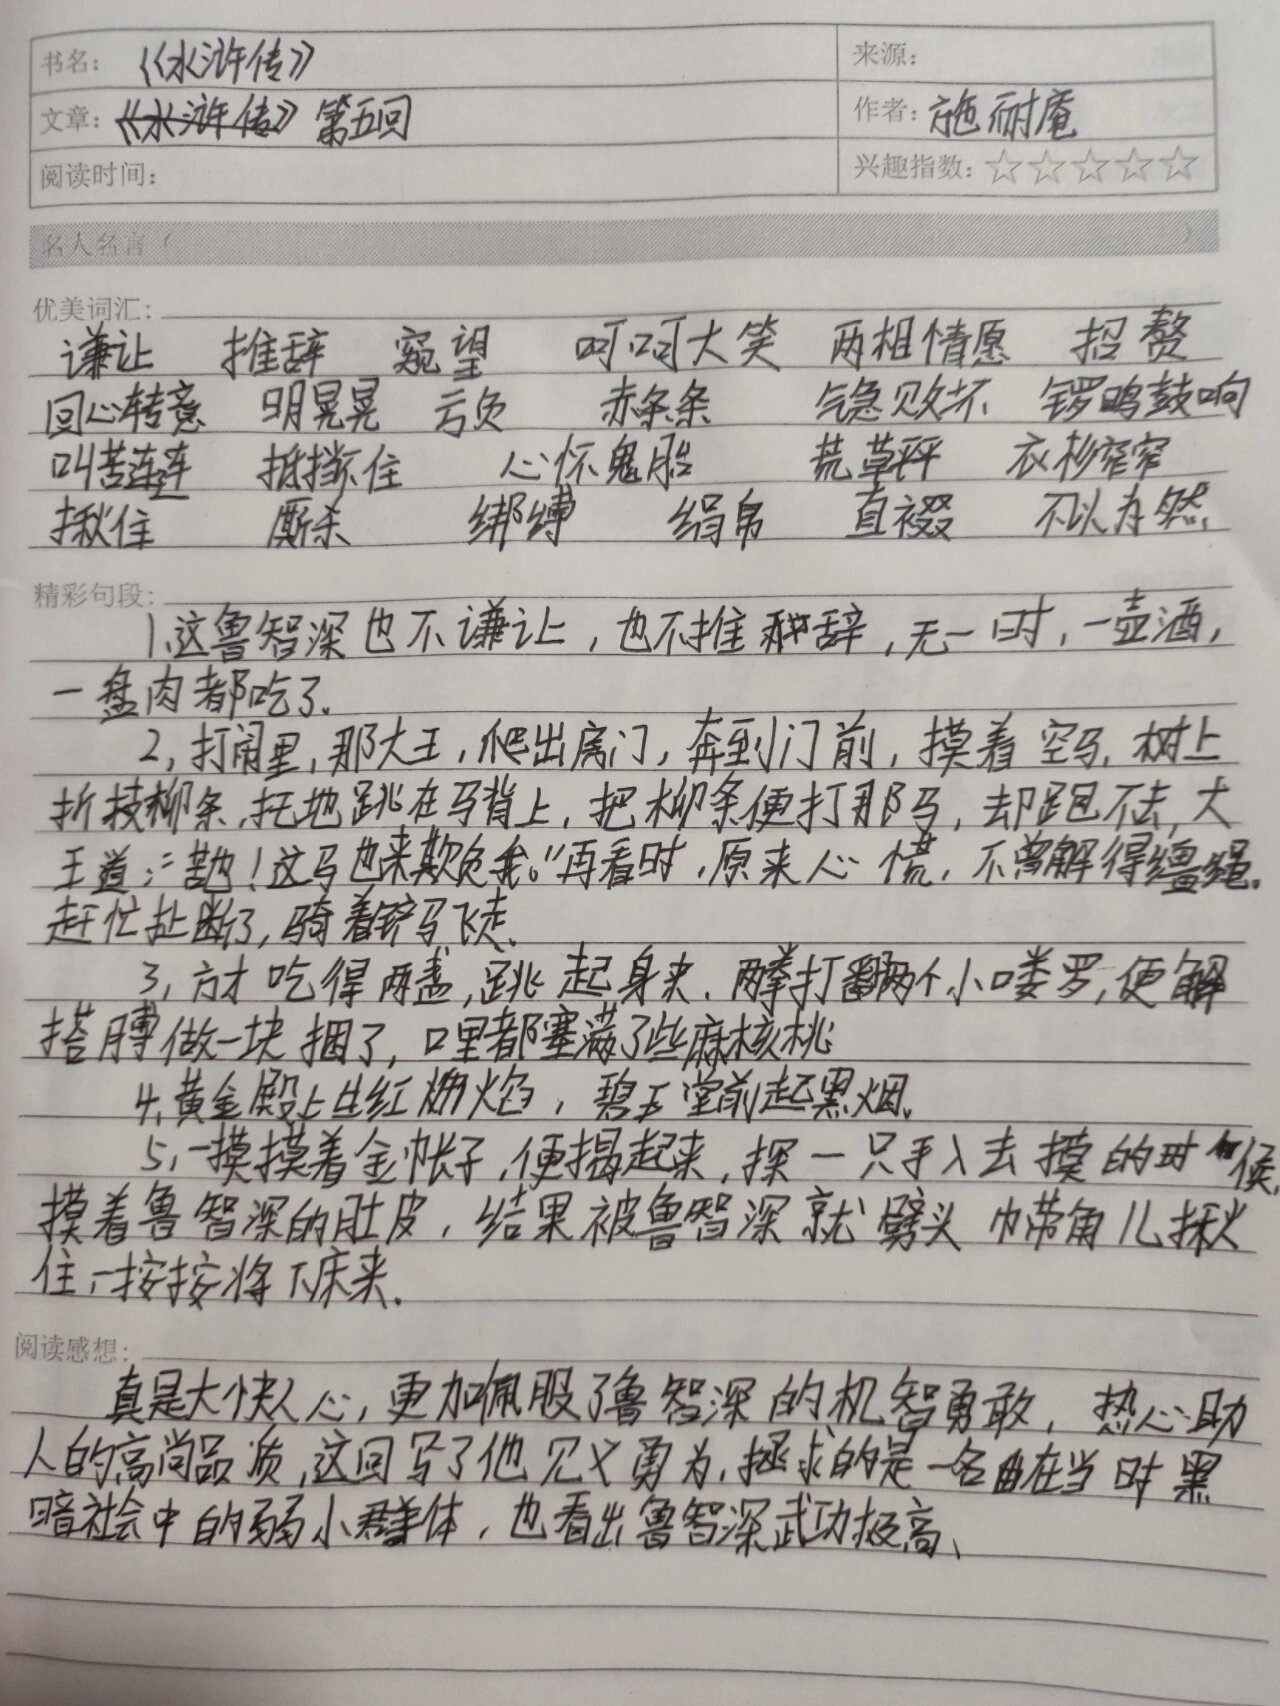 书名：《水浒传》
来源：
文章：《水浒传》第五回
作者：施耐庵
阅读时间：
兴趣指数：☆☆☆☆☆
名人名言（ ）
优美词汇：
谦让 推辞 窥望 呵呵大笑 两相情愿 招赘
回心转意 明晃晃 亏负 赤条条 气急败坏 锣鸣鼓响
叫苦连连 抵挡不住 心怀鬼胎 荒草坪 衣衫窄窄
揪住 厮杀 绑缚 绢帛 直裰 不以为然.
精彩句段：
1.这鲁智深也不谦让，也不推辞，无一时，一壶酒，
一盘肉都吃了.
2，打闹里，那大王，爬出房门，奔到门前，摸着空马，树上
折枝柳条，托地跳在马背上，把柳条便打那马，却跑不去，大
王道：“苦也！这马也来欺负我。”再看时，原来心慌，不曾解得缰绳。
赶忙扯断了，骑着铲马飞走.
3，方才吃得两盏，跳起身来，两拳打翻两个小喽罗，便解
搭膊做一块捆了，口里都塞满了些麻核桃
4.黄金殿上生红焰，碧玉堂前起黑烟.
5，一摸摸着金帐子，便揭起来，探一只手入去摸的时候，
摸着鲁智深的肚皮，结果被鲁智深就劈头巾带角儿揪
住，一按按将下床来.
阅读感想：
真是大快人心，更加佩服了鲁智深的机智勇敢，热心助
人的高尚品质，这回写了他见义勇为，拯求的是一名由在当时黑
暗社会中的弱小群体，也看出鲁智深武功极高、